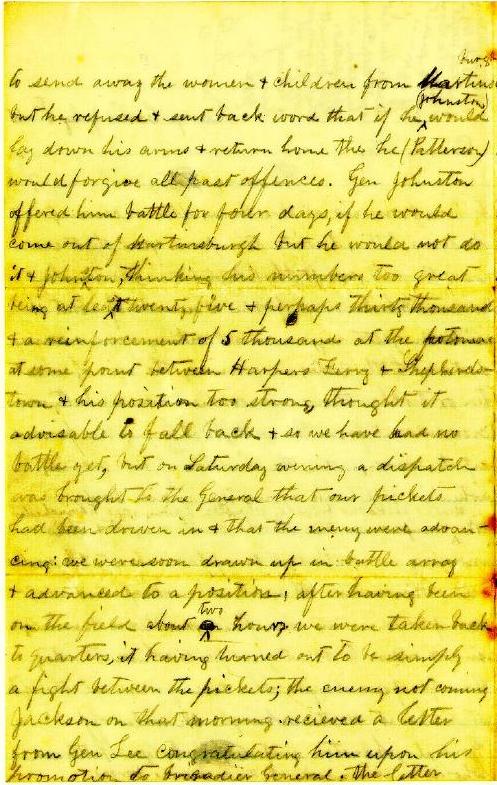 to send away the women & children from Martins
burgh
but he refused & sent back word that if he (Johnston) would
lay down his arms & return home the he (Patterson)
would forgive all past offences. Gen Johnston
offered him battle for four days, if he would
come out of Martinsburgh but he would not do
it & Johnston, thinking his numbers too great
being at least twenty five & perhaps thirty thousand
& a reinforcement of 5 thousands at the potomac
at some point between Harpers Ferry & Shepherds-
town & his position too strong, thought it
advisable to fall back & so we have had no
battle yet, but on Saturday evening a dispatch
was brought to the General that our pickets
had been driven in & that the enemy were advan-
cing: we were soon drawn up in battle array
& advanced to a position; after having been
on the field about two hours we were taken back
to quarters, it having turned out to be simply
a fight between the pickets; the enemy not coming
Jackson on that morning recieved a letter
from Gen Lee congratulating him upon his
promotion to Brigadier General. the letter